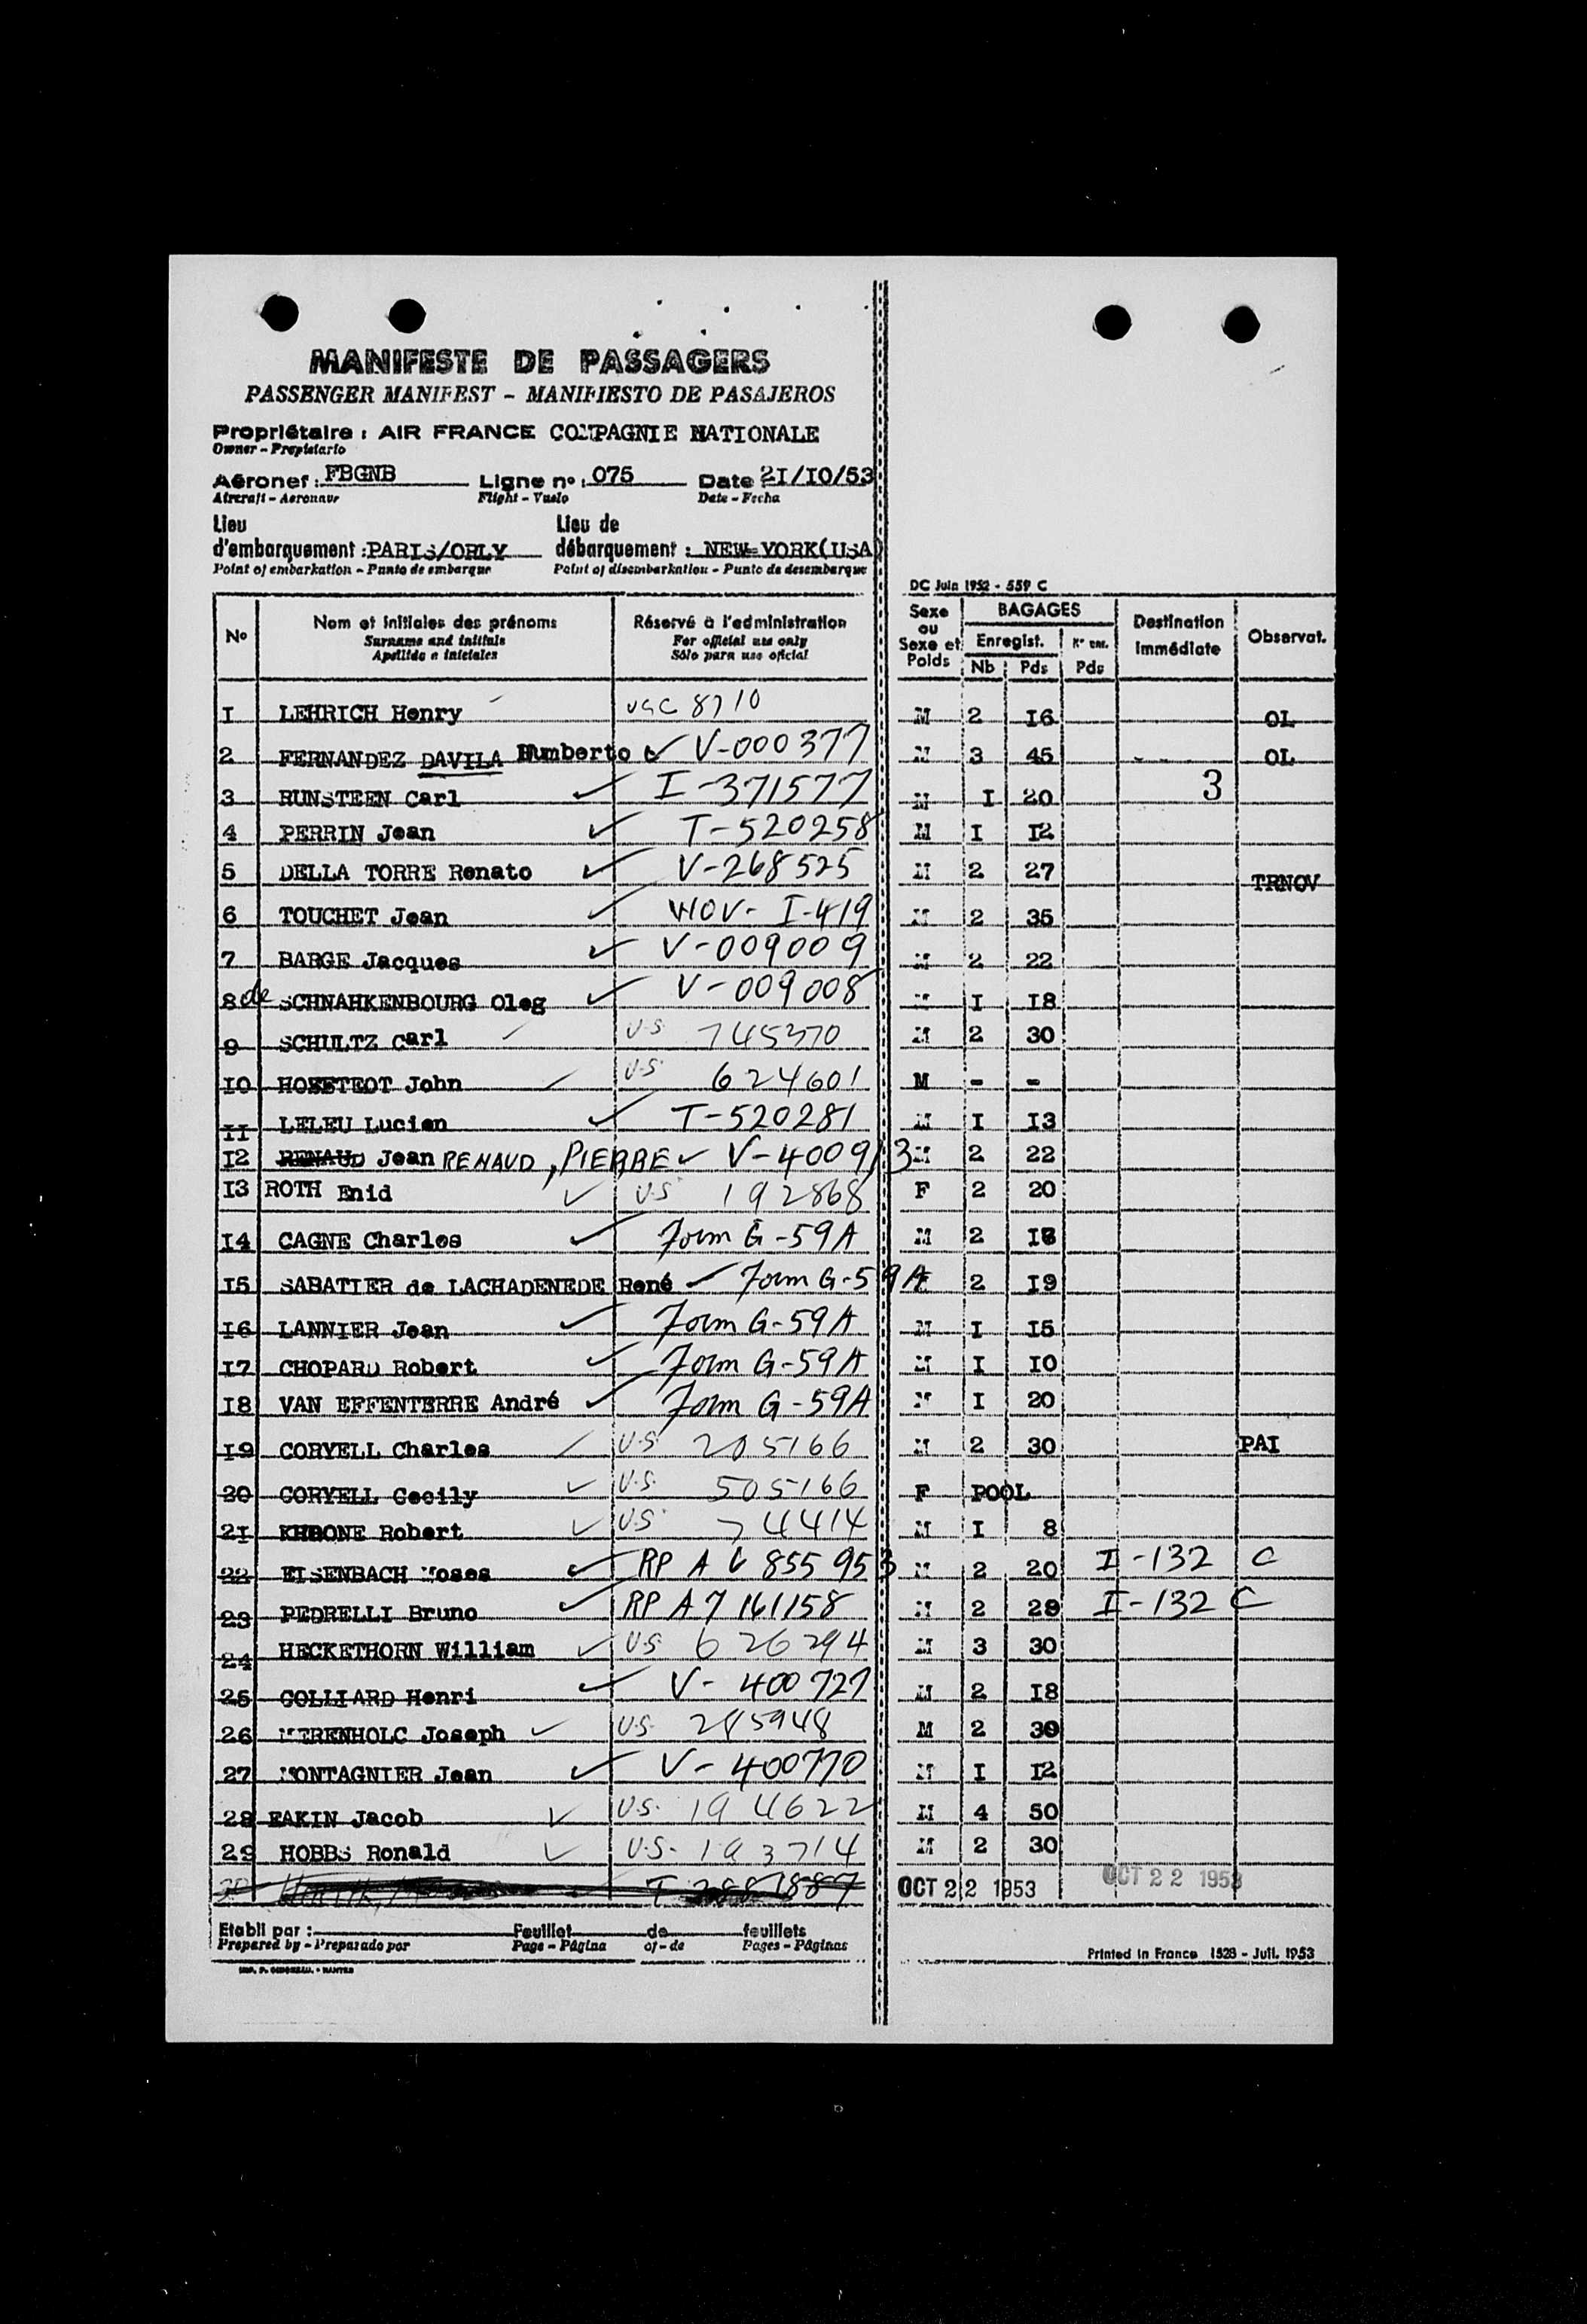 MANIFESTE DE PASSAGERS
PASSENGER MANIFEST - MANIFIESTO DE PASAJEROS
Propriétaire : AIR FRANCE COMPAGNIE NATIONALE
Owner - Propietario
Aéronef : FBGNB Ligne n° : 075 Date 2I/IO/53
Aircraft - Aeronave Flight - Vuelo Date - Fecha
Lieu Lieu de
d'embarquement : PARIS/ORLY débarquement : NEW-YORK(USA)
Point of embarkation - Punto de embarque Point of disembarkation - Punto de desembarque
DC Juin 1952 - 559 C
N° Nom et initiales des prénoms Réservé à l'administration Sexe ou Sexe et Poids BAGAGES Destination immédiate Observat.
Surname and initials For official use only Enregist. Nb Pds Pds
Apellido e iniciales Sólo para uso oficial
I LEHRICH Henry 8710 M 2 I6 OL
2 FERNANDEZ DAVILA Humberto V-000377 M 3 45 OL
3 RUNSTEEN Carl I-371577 M I 20 3
4 PERRIN Jean T-520258 M I I2
5 DELLA TORRE Renato V-268525 M 2 27 TRNOV
6 TOUCHET Jean I-419 M 2 35
7 BARGE Jacques V-009009 M 2 22
8 de SCHNAHKENBOURG Oleg V-009008 M I I8
9 SCHULTZ Carl U.S. 745370 M 2 30
IO John U.S. 624601 M - -
II LELEU Lucien T-520281 M I I3
I2 RENAUD Jean RENAUD, PIERRE V-400913 M 2 22
I3 ROTH Enid U.S. 192868 F 2 20
I4 CAGNE Charles Form G-59A M 2 I8
I5 SABATIER de LACHADENEDE René Form G-59A 2 I9
I6 LANNIER Jean Form G-59A M I I5
I7 CHOPARD Robert Form G-59A M I IO
I8 VAN EFFENTERRE André Form G-59A M I 20
I9 CORYELL Charles U.S. 205166 M 2 30 PAI
20 CORYELL Cecily U.S. 505166 F POOL
2I Robert U.S. 74414 M I 8
22 EISENBACH Moses RP A 6 855 953 M 2 20 I-132 C
23 PEDRELLI Bruno RP A7 161158 M 2 28 I-132 C
24 HECKETHORN William U.S. 626294 M 3 30
25 COLLIARD Henri V-400727 M 2 I8
26 MERENHOLC Joseph U.S. 285948 M 2 30
27 MONTAGNIER Jean V-400770 M I I2
28 EAKIN Jacob U.S. 194622 M 4 50
29 HOBBS Ronald U.S. 193714 M 2 30
30 OCT 22 1953 OCT 22 1953
Etabli par : Feuillet de feuillets
Prepared by - Preparado por Page - Página of - de Pages - Páginas
Printed in France 1528 - Juil. 1953